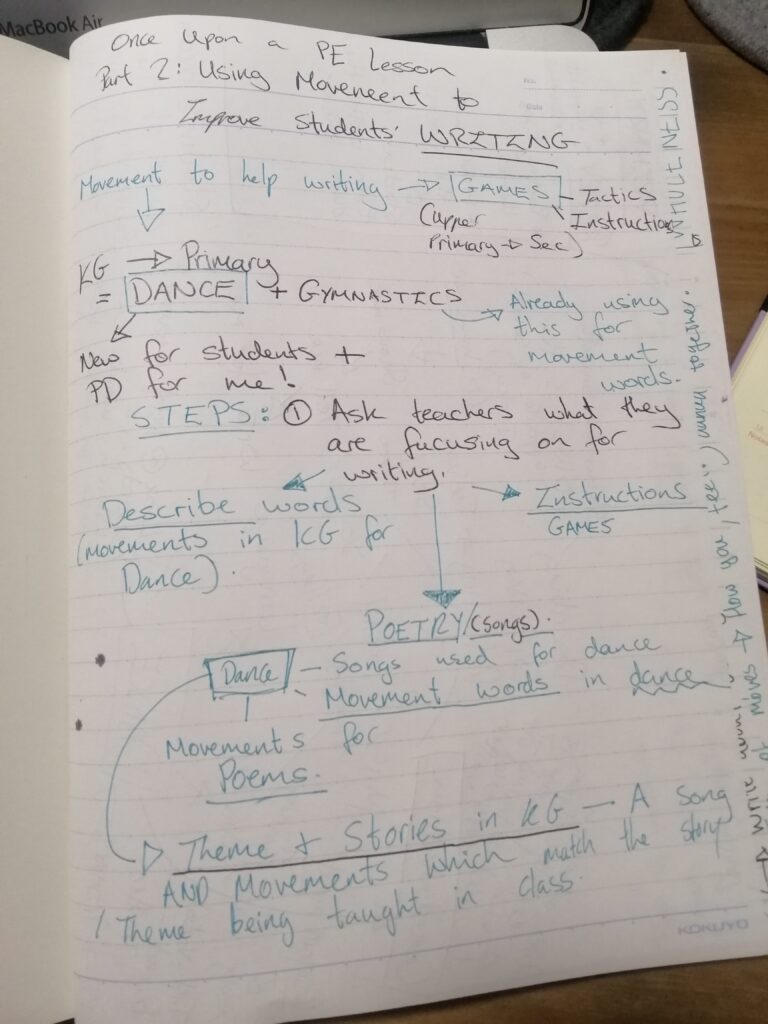 MacBook Air
Once Upon a PE Lesson
Part 2: Using Movement to
Improve Students' WRITING
Movement to help writing → GAMES – Tactics
Instructions
(upper
Primary → Sec)
KG → Primary
= DANCE + GYMNASTICS
→ Already using
this for
movement
words.
New for students +
PD for me!
STEPS: ① Ask teachers what they
are focusing on for
writing.
Describe words
(movements in KG for
Dance).
Instructions
GAMES
POETRY/(songs).
Dance – Songs used for dance
Movement words in dance
Movements for
Poems.
Theme + Stories in KG – A song
AND Movements which match the story
/ Theme being taught in class.
KOKUYO
moves → How you feel
together.